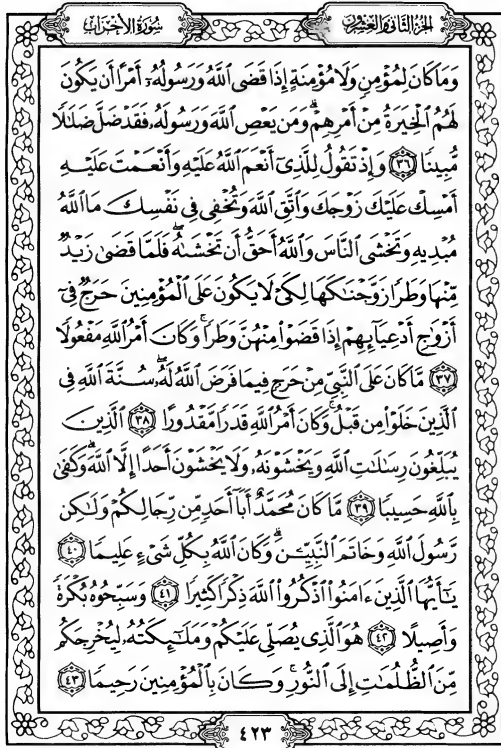 سُورَةُ الأَحْزَابِ
الجُزْءُ الثَّانِي وَالعِشْرُونَ
وَمَا كَانَ لِمُؤْمِنٍ وَلَا مُؤْمِنَةٍ إِذَا قَضَى ٱللَّهُ وَرَسُولُهُۥٓ أَمْرًا أَن يَكُونَ
لَهُمُ ٱلْخِيَرَةُ مِنْ أَمْرِهِمْ ۗ وَمَن يَعْصِ ٱللَّهَ وَرَسُولَهُۥ فَقَدْ ضَلَّ ضَلَٰلًا
مُّبِينًا ٣٦ وَإِذْ تَقُولُ لِلَّذِىٓ أَنْعَمَ ٱللَّهُ عَلَيْهِ وَأَنْعَمْتَ عَلَيْهِ
أَمْسِكْ عَلَيْكَ زَوْجَكَ وَٱتَّقِ ٱللَّهَ وَتُخْفِى فِى نَفْسِكَ مَا ٱللَّهُ
مُبْدِيهِ وَتَخْشَى ٱلنَّاسَ وَٱللَّهُ أَحَقُّ أَن تَخْشَىٰهُ ۖ فَلَمَّا قَضَىٰ زَيْدٌ
مِّنْهَا وَطَرًا زَوَّجْنَٰكَهَا لِكَىْ لَا يَكُونَ عَلَى ٱلْمُؤْمِنِينَ حَرَجٌ فِىٓ
أَزْوَٰجِ أَدْعِيَآئِهِمْ إِذَا قَضَوْا۟ مِنْهُنَّ وَطَرًا ۚ وَكَانَ أَمْرُ ٱللَّهِ مَفْعُولًا
٣٧ مَّا كَانَ عَلَى ٱلنَّبِىِّ مِنْ حَرَجٍ فِيمَا فَرَضَ ٱللَّهُ لَهُۥ ۖ سُنَّةَ ٱللَّهِ فِى
ٱلَّذِينَ خَلَوْا۟ مِن قَبْلُ ۚ وَكَانَ أَمْرُ ٱللَّهِ قَدَرًا مَّقْدُورًا ٣٨ ٱلَّذِينَ
يُبَلِّغُونَ رِسَٰلَٰتِ ٱللَّهِ وَيَخْشَوْنَهُۥ وَلَا يَخْشَوْنَ أَحَدًا إِلَّا ٱللَّهَ ۗ وَكَفَىٰ
بِٱللَّهِ حَسِيبًا ٣٩ مَّا كَانَ مُحَمَّدٌ أَبَآ أَحَدٍ مِّن رِّجَالِكُمْ وَلَٰكِن
رَّسُولَ ٱللَّهِ وَخَاتَمَ ٱلنَّبِيِّۦنَ ۗ وَكَانَ ٱللَّهُ بِكُلِّ شَىْءٍ عَلِيمًا ٤٠
يَٰٓأَيُّهَا ٱلَّذِينَ ءَامَنُوا۟ ٱذْكُرُوا۟ ٱللَّهَ ذِكْرًا كَثِيرًا ٤١ وَسَبِّحُوهُ بُكْرَةً
وَأَصِيلًا ٤٢ هُوَ ٱلَّذِى يُصَلِّى عَلَيْكُمْ وَمَلَٰٓئِكَتُهُۥ لِيُخْرِجَكُم
مِّنَ ٱلظُّلُمَٰتِ إِلَى ٱلنُّورِ ۚ وَكَانَ بِٱلْمُؤْمِنِينَ رَحِيمًا ٤٣
٤٢٣